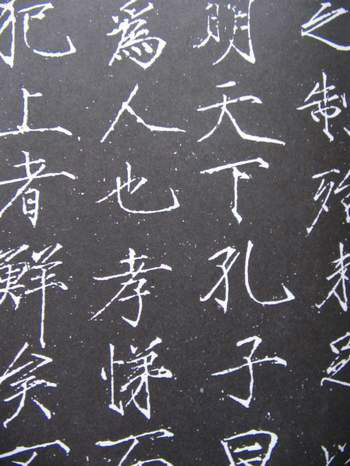 之制殆未足
明天下孔子曰
為人也孝悌而
犯上者鮮矣不